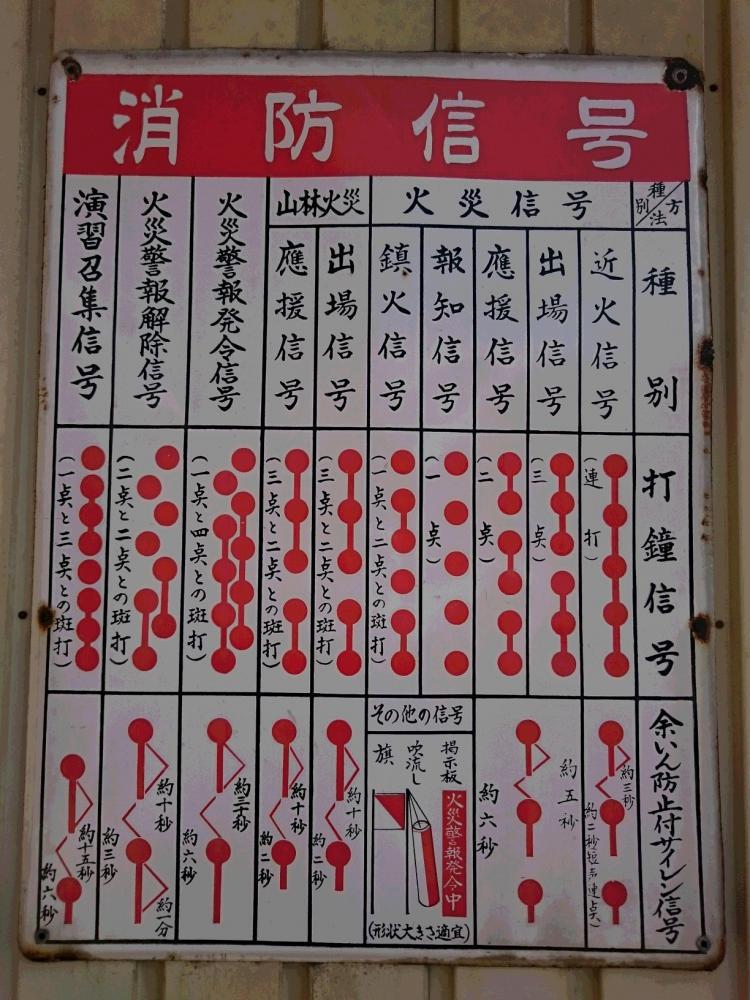 消防信号
種別
方法
火災信号
山林火災
火災警報発令信号
火災警報解除信号
演習召集信号
種別
近火信号
出場信号
應援信号
報知信号
鎮火信号
出場信号
應援信号
打鐘信号
(連打)
(三点)
(二点)
(一点)
(一点と二点との斑打)
(三点と二点との斑打)
(三点と二点との斑打)
(一点と四点との斑打)
(二点と二点との斑打)
(一点と三点との斑打)
余いん防止付サイレン信号
約三秒
約二秒短声連点)
約五秒
約六秒
その他の信号
掲示板
吹流し
旗
火災警報発令中
(形状大きさ適宜)
約十秒
約二秒
約十秒
約二秒
約三十秒
約六秒
約十秒
約三秒
約一分
約十五秒
約六秒